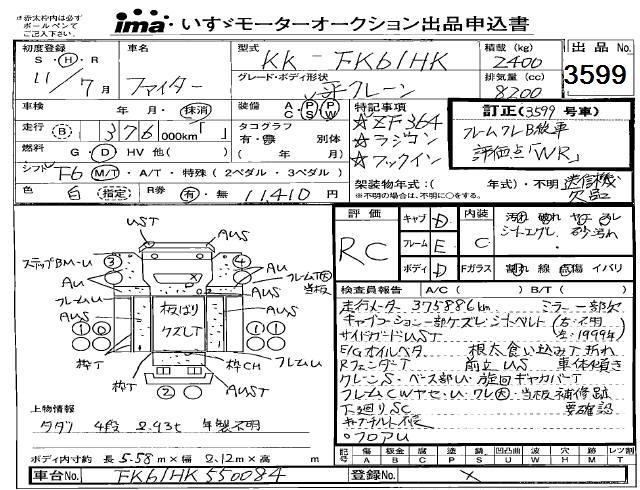 *赤太枠内は必ず
ボールペンで
ご記入下さい
ima・いすゞモーターオークション出品申込書
初度登録
S・H・R
11/7月
車名
ファイター
型式
KK-FK61HK
グレード・ボディ形状
平クレーン
積載(kg)
2400
排気量(cc)
8200
出品No.
3599
車検 年 月・抹消
装備 AC PS PW
走行(B) 376 000km「 」
タコグラフ
有・無 別体
( 年 月)
燃料 G・D HV 他( )
シフト F6 M/T・A/T・特殊(2ペダル・3ペダル)
色 白 (指定) R券 有・無 11,410円
特記事項
☆ZF364
☆ラジコン
☆フックイン
訂正(3599号車)
フレームクレB故車
評価点「WR」
架装物年式:(
(不明の場合は、不明に○をする。)
年式)・不明
送信機
欠品
評価
RC
キャブ D
フレーム E
ボディ D
内装
C
Fガラス
汚れ 破れ ヤブ コゲ
シートエグレ
割れ 線 点傷 イバリ
UST
AUS
ステップBM-U
③
④
AU
フレームU
AUS
当板
板ばり
ケズレT
①
①
枠T
枠CH
フレームU
②
AUST
検査員報告 A/C( ) B/T( )
走行メーター375886km ミラー一部欠
サイドガードUST 左・1999年
E/Gオイルベタ 根太食い込み下折れ
RフェンダーT 前立US 車体傾き
クレーンS・ベース部U・旋回ギヤカバーT
フレームCWヤセ・U・ワレ・当板補修跡
下廻りSC 要確認
キャブチルト不良
・フロアU
上物情報
タダノ 4段 2.93t 年製不明
ボディ内寸約 長5.58m×幅2.12m×高 m
記号
傷 A
板金 B
腐 C
塗 P
錆 S
凹凸曲 U
波 W
穴 H
跡 M
レツ割 T
車台No. FK61HK550084
登録No. ×